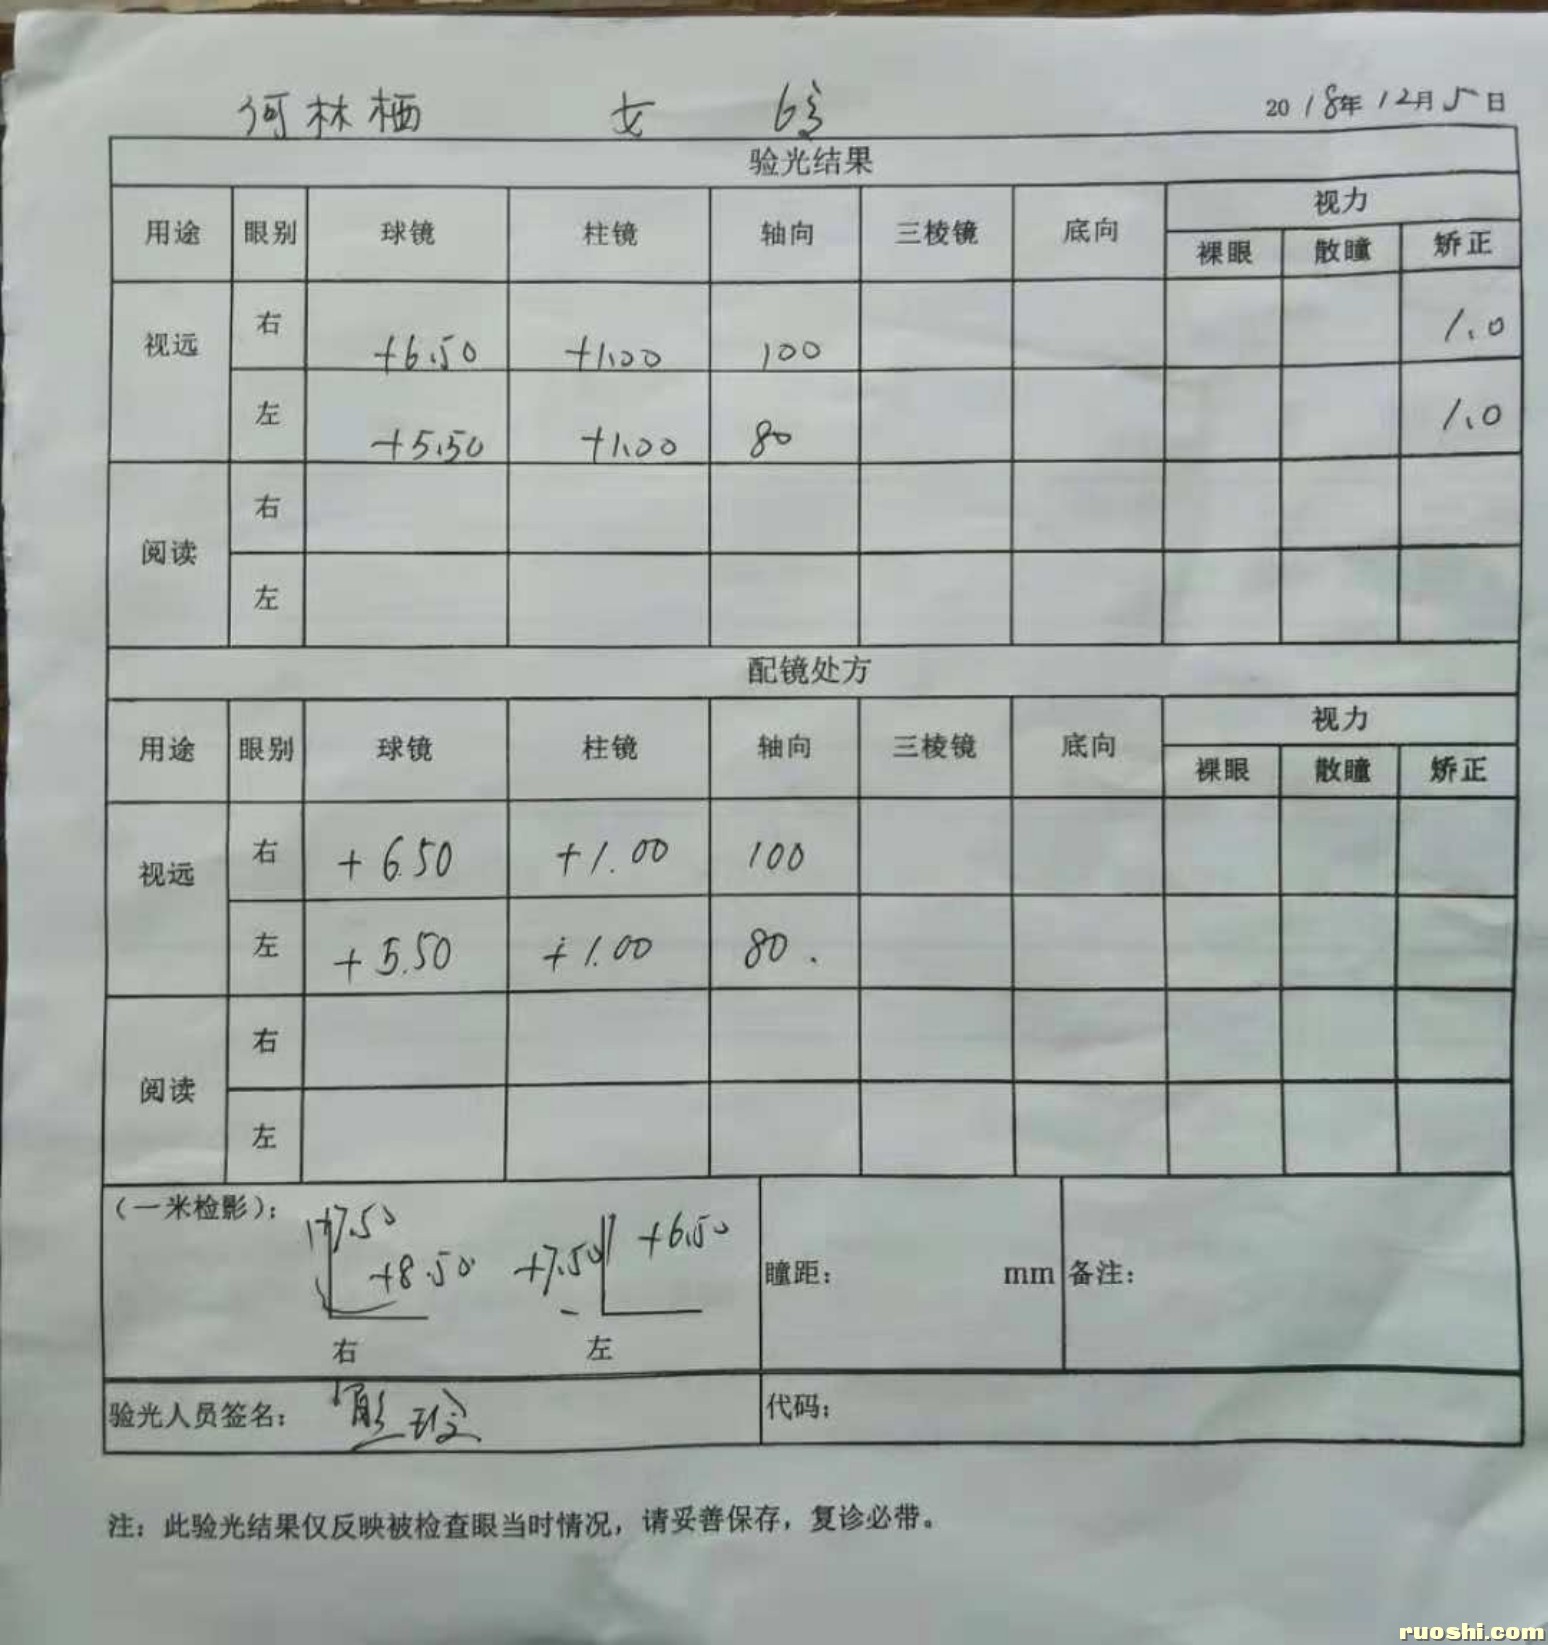 何林栖 女 6岁 2018年12月5日
验光结果
用途 眼别 球镜 柱镜 轴向 三棱镜 底向 视力
裸眼 散瞳 矫正
视远 右 +6.50 +1.00 100 1.0
左 +5.50 +1.00 80 1.0
阅读 右
左
配镜处方
用途 眼别 球镜 柱镜 轴向 三棱镜 底向 视力
裸眼 散瞳 矫正
视远 右 +6.50 +1.00 100
左 +5.50 +1.00 80.
阅读 右
左
(一米检影): +7.50 +8.50 +7.50 +6.50
右 左
瞳距: mm 备注:
验光人员签名: 代码:
注: 此验光结果仅反映被检查眼当时情况, 请妥善保存, 复诊必带。
ruoshi.com